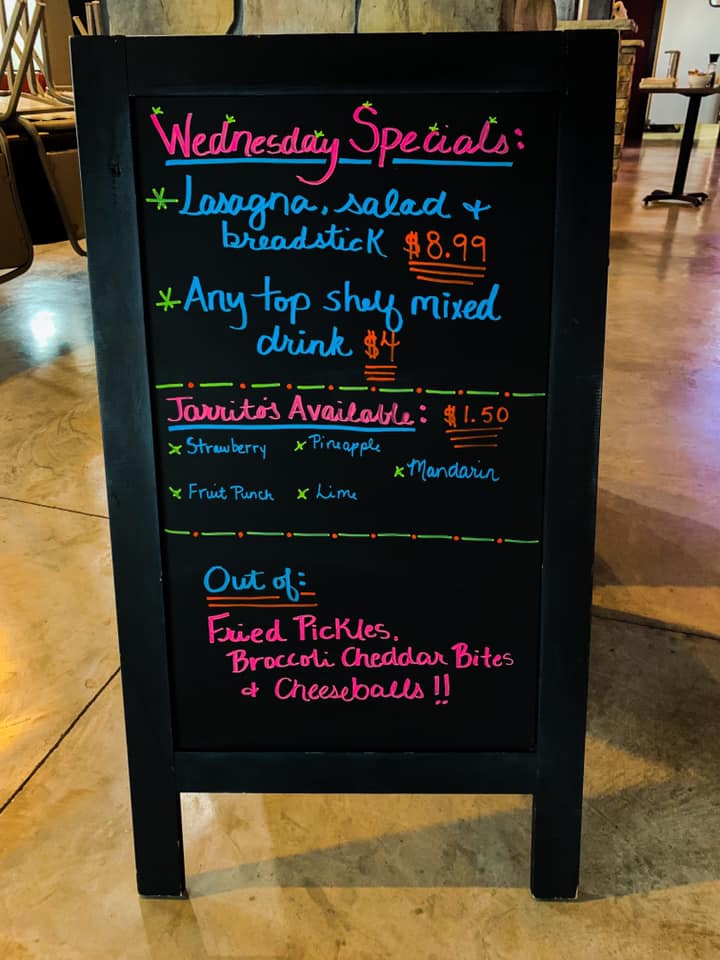 Wednesday Specials:
* Lasagna, salad +
breadstick $8.99
* Any top shelf mixed
drink $4
Jarrito's Available: $1.50
x Strawberry x Pineapple
x Mandarin
x Fruit Punch x Lime
Out of:
Fried Pickles,
Broccoli Cheddar Bites
+ Cheeseballs !!